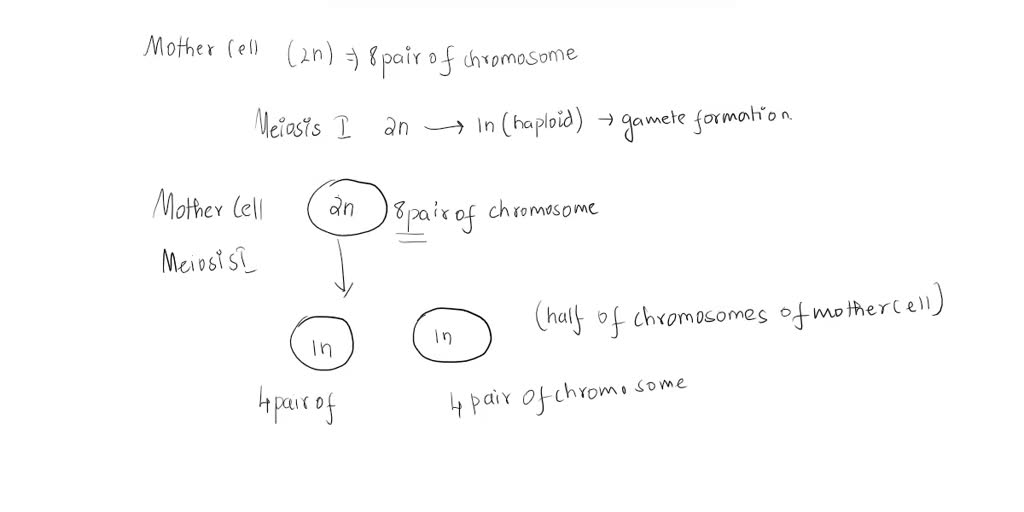 Mother Cell (2n) ⇒ 8 pair of chromosome
Meiosis I 2n → 1n (haploid) → gamete formation.
Mother Cell 2n 8 pair of chromosome
Meiosis I
1n 1n (half of chromosomes of mother cell)
4 pair of 4 pair of chromosome